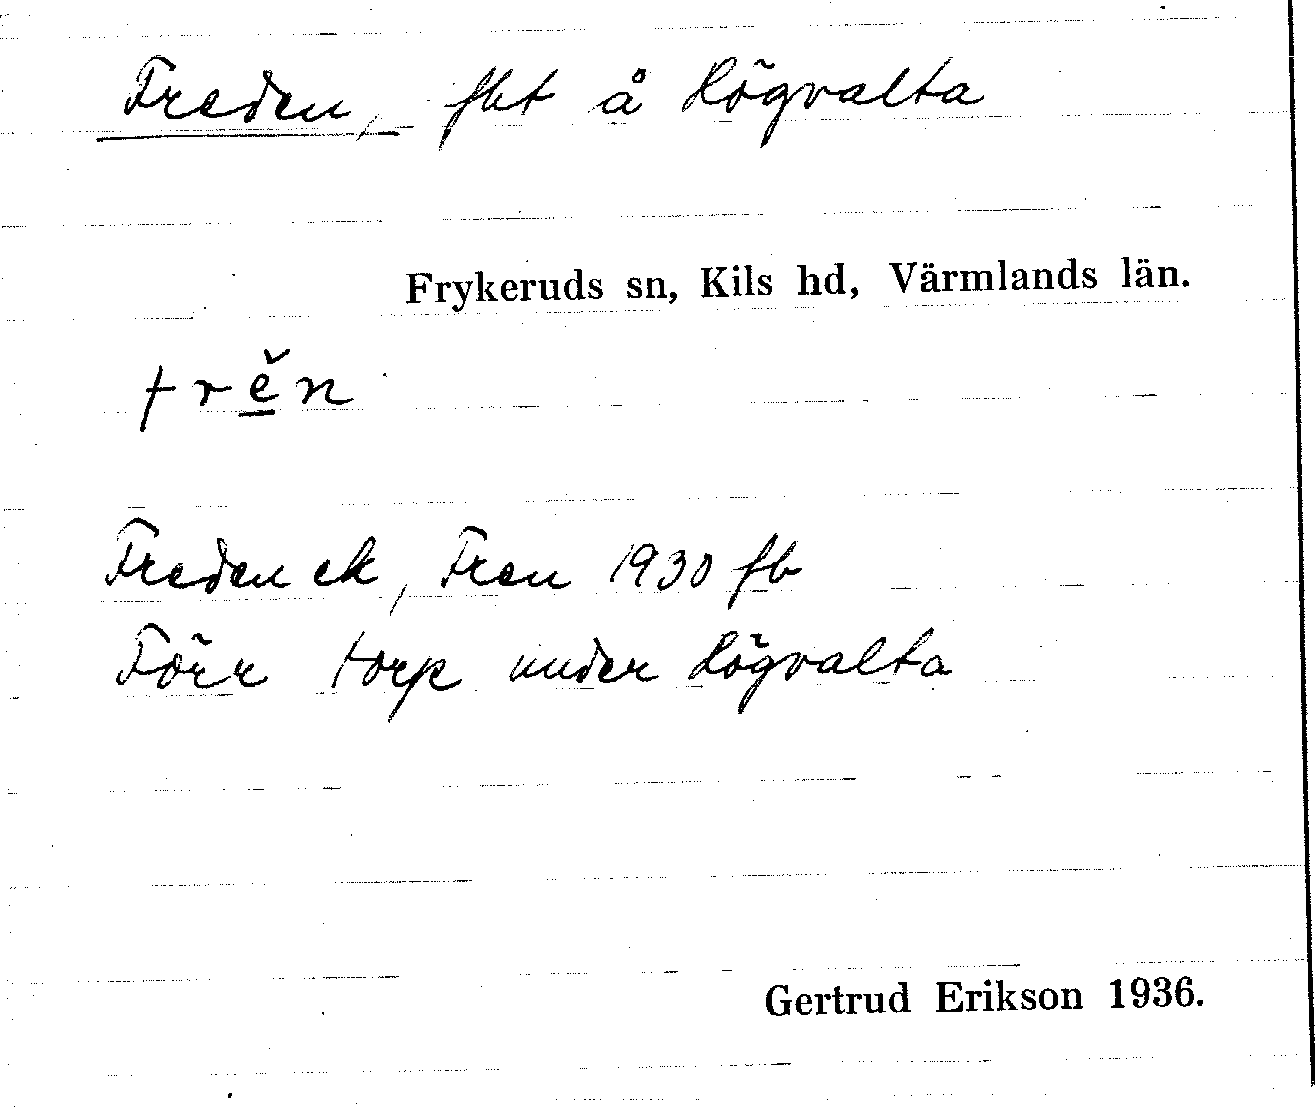 Freden, fht å Högvalta
Frykeruds sn, Kils hd, Värmlands län.
frĕ̱n
Freden ek, Fren 1930 fb
Förr torp under Högvalta
Gertrud Erikson 1936.